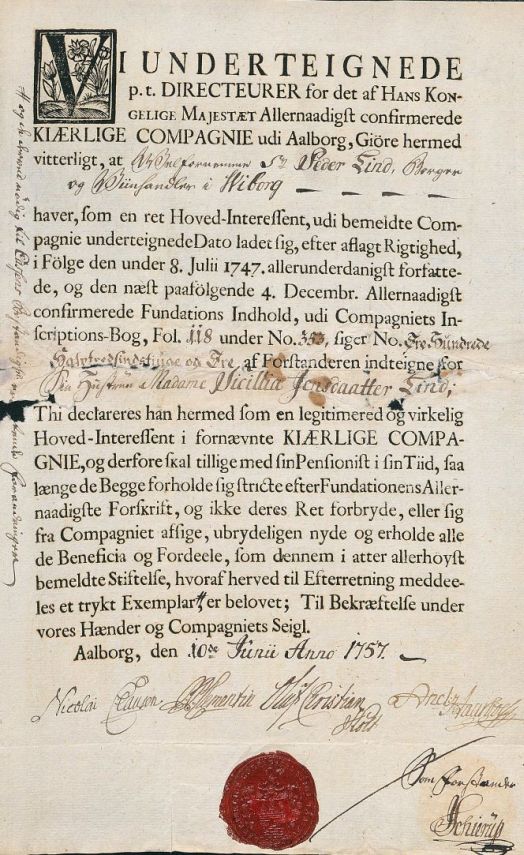 VI UNDERTEIGNEDE
p. t. DIRECTEURER for det af HANS KON-
GELIGE MAJESTÆT Allernaadigst confirmerede
KIÆRLIGE COMPAGNIE udi Aalborg, Giöre hermed
vitterligt, at Velfornemme Sr Peder Lind, Borger
og Viinhandler i Wiborg
haver, som en ret Hoved-Interessent, udi bemeldte Com-
pagnie underteignede Dato ladet sig, efter aflagt Rigtighed,
i Fölge den under 8. Julii 1747. allerunderdanigst forfatte-
de, og den næst paafölgende 4. Decembr. Allernaadigst
confirmerede Fundations Indhold, udi Compagniets In-
scriptions-Bog, Fol. 118 under No. 353, siger No. Tre Hundrede
Halvtredsindstjuge og Tre af Forstanderen indteigne for
Sin Hustrue Madame Sicillia Jensdaatter Lind;
Thi declareres han hermed som en legitimered og virkelig
Hoved-Interessent i fornævnte KIÆRLIGE COMPA-
GNIE, og derfore skal tillige med sin Pensionist i sin Tiid, saa
længe de Begge forholde sig stricte efter Fundationens Aller-
naadigste Forskrift, og ikke deres Ret forbryde, eller sig
fra Compagniet afsige, ubrydeligen nyde og erholde alle
de Beneficia og Fordeele, som dennem i atter allerhöyst
bemeldte Stiftelse, hvoraf herved til Efterretning meddee-
les et trykt Exemplar er belovet; Til Bekræftelse under
vores Hænder og Compagniets Seigl.
Aalborg, den 10de Junii Anno 1757.
Nicolai Clauson
Som Forstander
Schierup